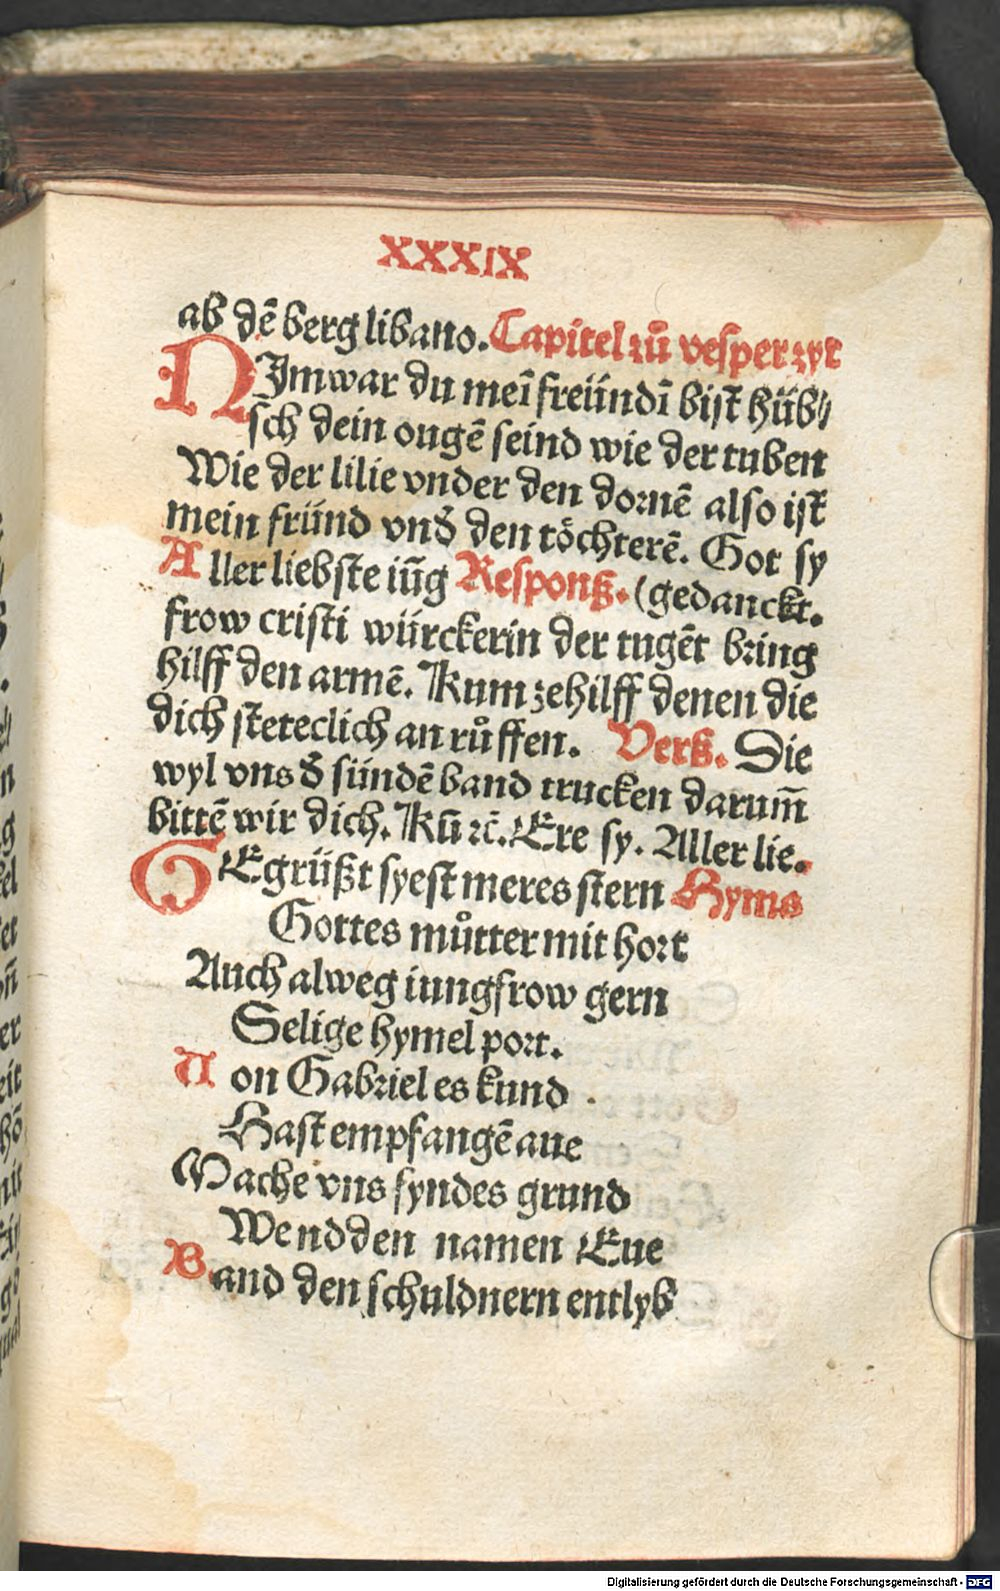 XXXIX
ab dē berg libano. Capitel zů vesper zyt
NImwar du meī freündī bist hüb⸗
sch dein ougē seind wie der tuben
Wie der lilie vnder den dornē also ist
mein fründ vnd̕ den töchterē. Got sy
Aller liebste iūg Responß. (gedanckt.
frow cristi würckerin der tugēt bring
hilff den armē. Kum zehilff denen die
dich steteclich an růffen. Verß. Die
wyl vns d̕ sündē band trucken darum̄
bittē wir dich. Kū ⁊c̄. Ere sy. Aller lie.
GEgrüßt syest meres stern Hyms
Gottes můtter mit hort
Auch alweg iungfrow gern
Selige hymel port.
Von Gabriel es kund
Hast empfangē aue
Mache vns syndes grund
Wend den namen Eue
Band den schuldnern entlyb
Digitalisierung gefördert durch die Deutsche Forschungsgemeinschaft - DFG